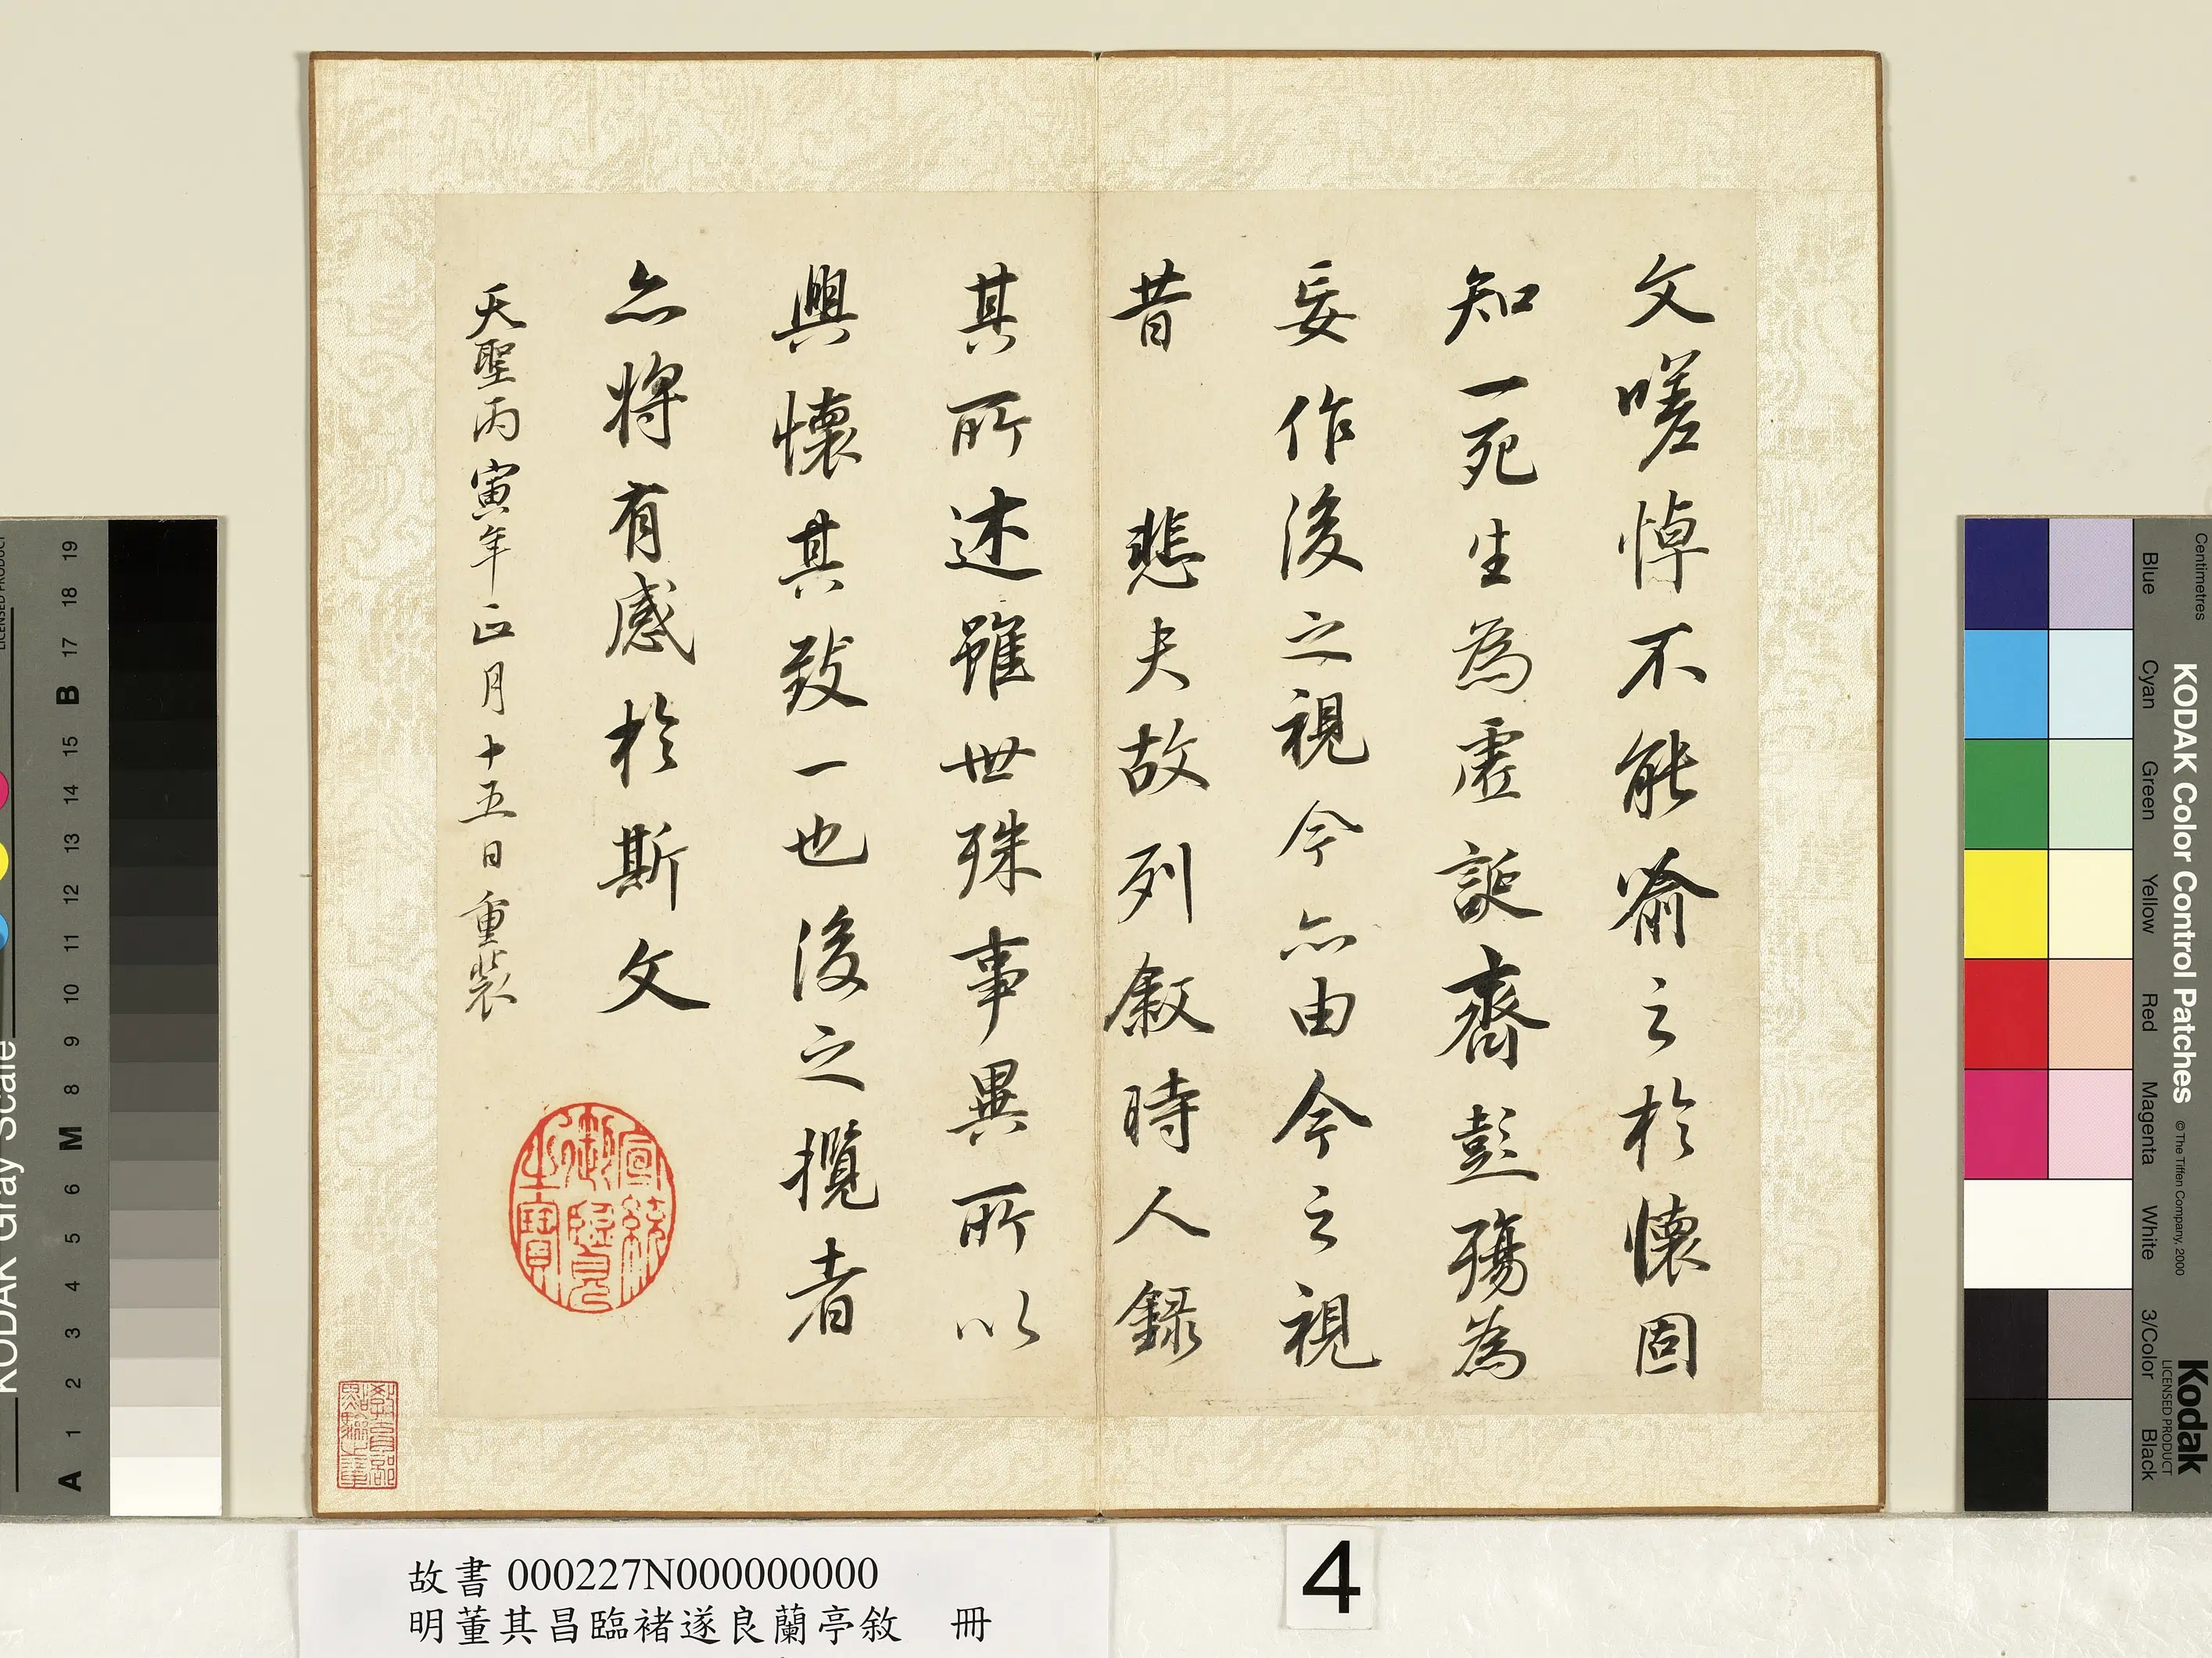 文嗟悼不能喻之於懷固
知一死生為虛誕齊彭殤為
妄作後之視今亦由今之視
昔 悲夫故列敘時人錄
其所述雖世殊事異所以
興懷其致一也後之攬者
亦將有感於斯文
天聖丙寅年正月十五日重裝
宣統
御覽
之寶
故書 000227N000000000
明董其昌臨褚遂良蘭亭敘 冊
4
KODAK Gray Scale
LICENSED PRODUCT
A 1 2 3 4 5 6 M 8 9 10 11 12 13 14 15 B 17 18 19
KODAK Color Control Patches
© The Tiffen Company, 2000
Kodak
LICENSED PRODUCT
Centimetres
Blue Cyan Green Yellow Red Magenta White 3/Color Black